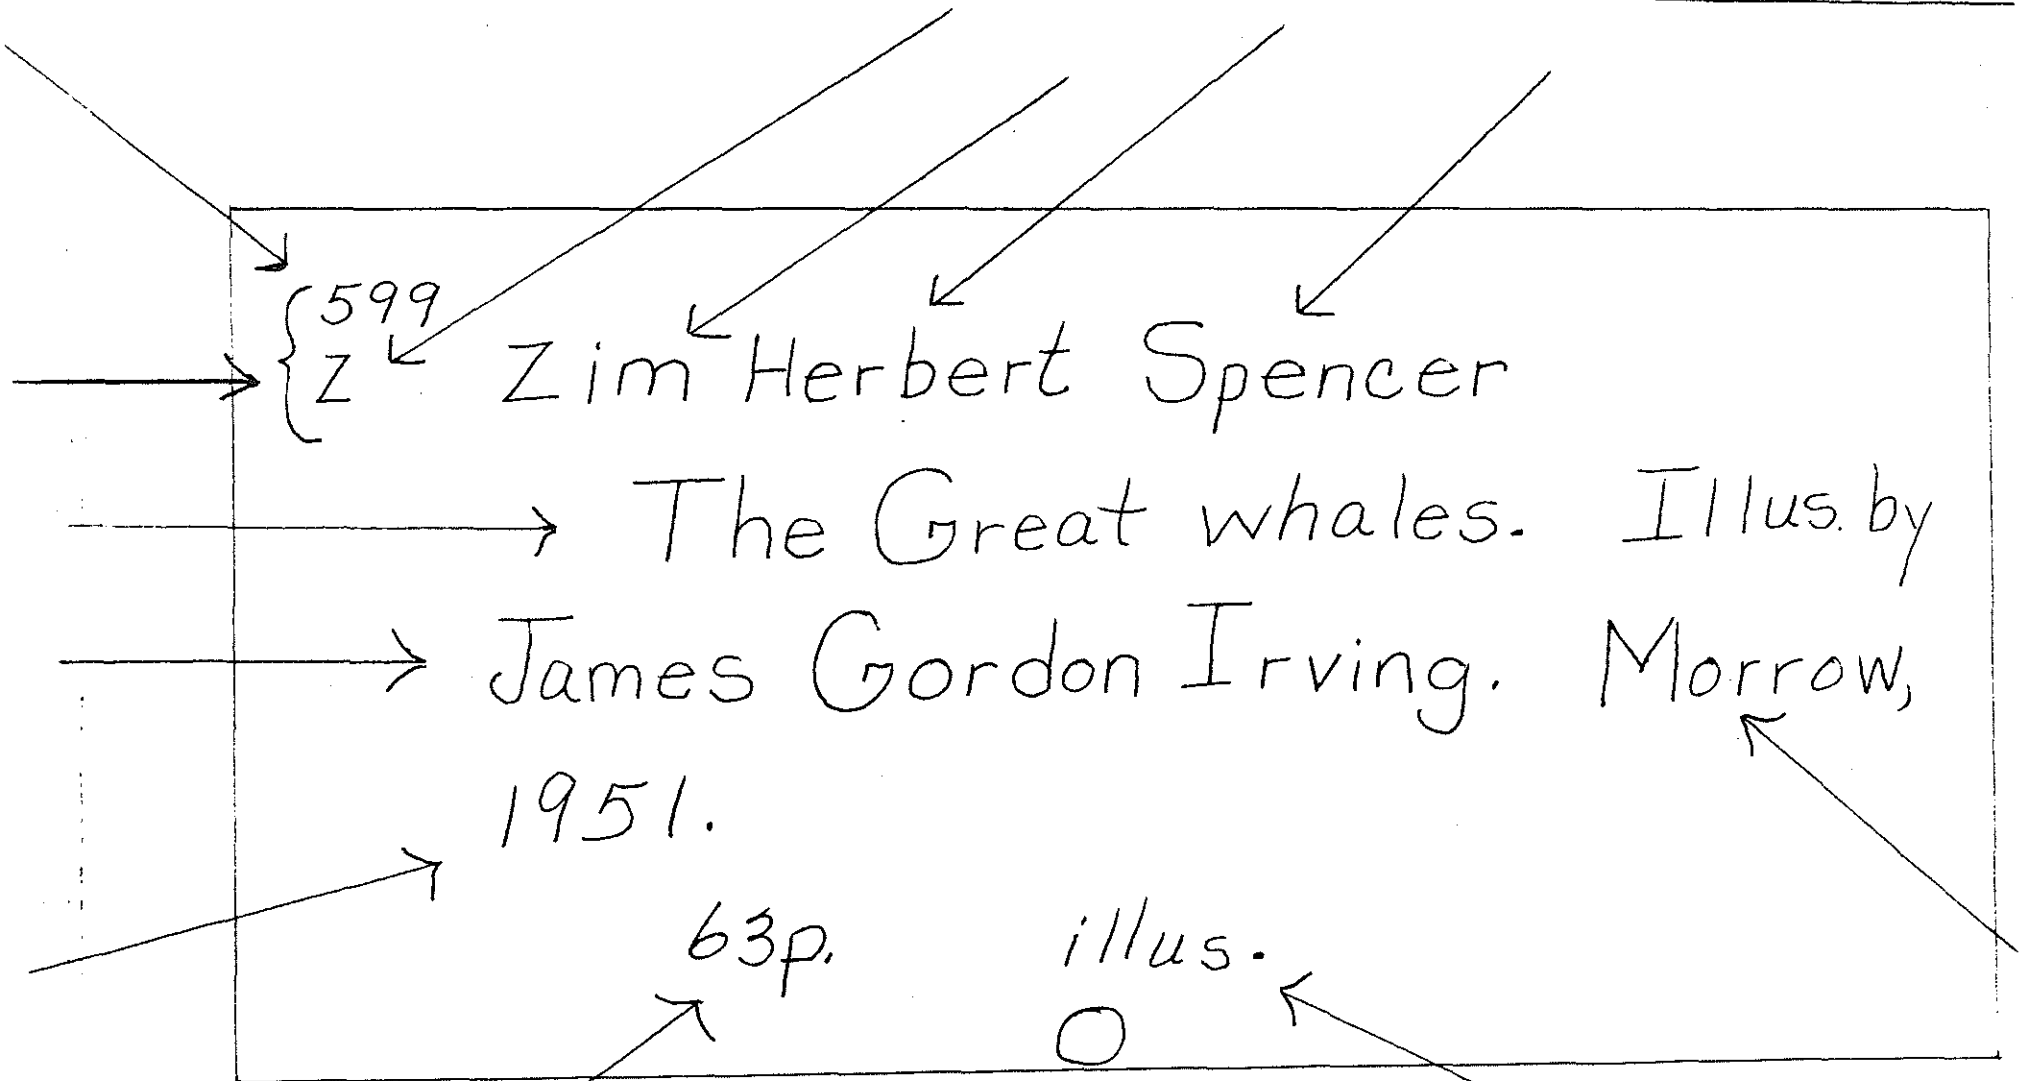 599
Z Zim Herbert Spencer
The Great whales. Illus. by
James Gordon Irving. Morrow,
1951.
63p. illus.